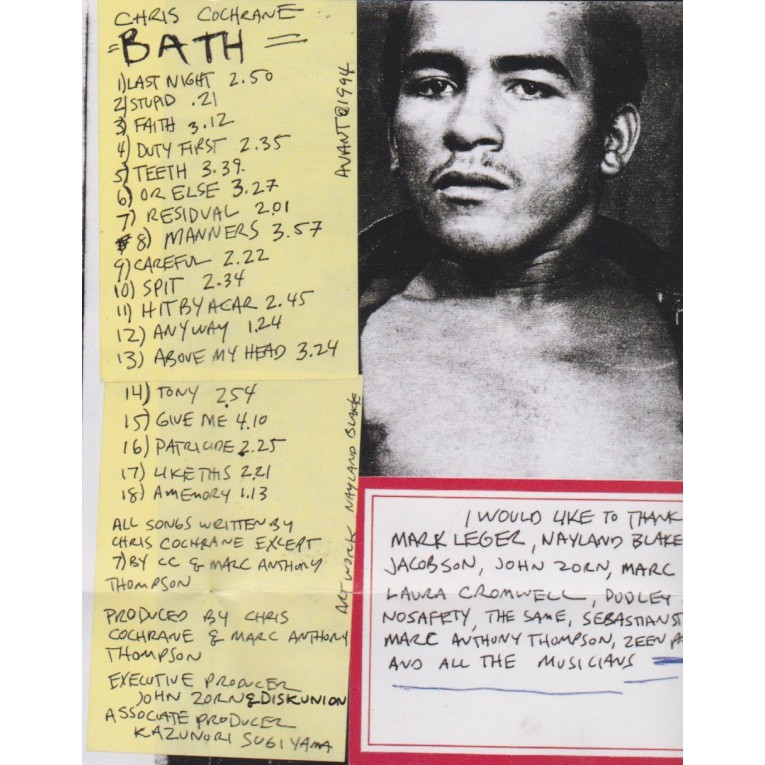 CHRIS COCHRANE
=BATH=
1) LAST NIGHT 2.50
2) STUPID .21
3) FAITH 3.12
4) DUTY FIRST 2.35
5) TEETH 3.39.
6) OR ELSE 3.27
7) RESIDUAL 2.01
8) MANNERS 3.57
9) CAREFUL 2.22
10) SPIT 2.34
11) HIT BY A CAR 2.45
12) ANYWAY 1.24
13) ABOVE MY HEAD 3.24
AVANT @1994
14) TONY 2.54
15) GIVE ME 4.10
16) PATRICIDE 2.25
17) LIKE THIS 2.21
18) A MEMORY 1.13
ALL SONGS WRITTEN BY
CHRIS COCHRANE EXCEPT
7) BY CC & MARC ANTHONY
THOMPSON
PRODUCED BY CHRIS
COCHRANE & MARC ANTHONY
THOMPSON
EXECUTIVE PRODUCER
JOHN ZORN & DISKUNION
ASSOCIATE PRODUCER
KAZUNORI SUGIYAMA
ARTWORK NAYLAND BLAKE
I WOULD LIKE TO THANK
MARK LEGER, NAYLAND BLAKE
JACOBSON, JOHN ZORN, MARC
LAURA CROMWELL, DUDLEY
NO SAFETY, THE SAME, SEBASTIAN ST
MARC ANTHONY THOMPSON, ZEENA P
AND ALL THE MUSICIANS